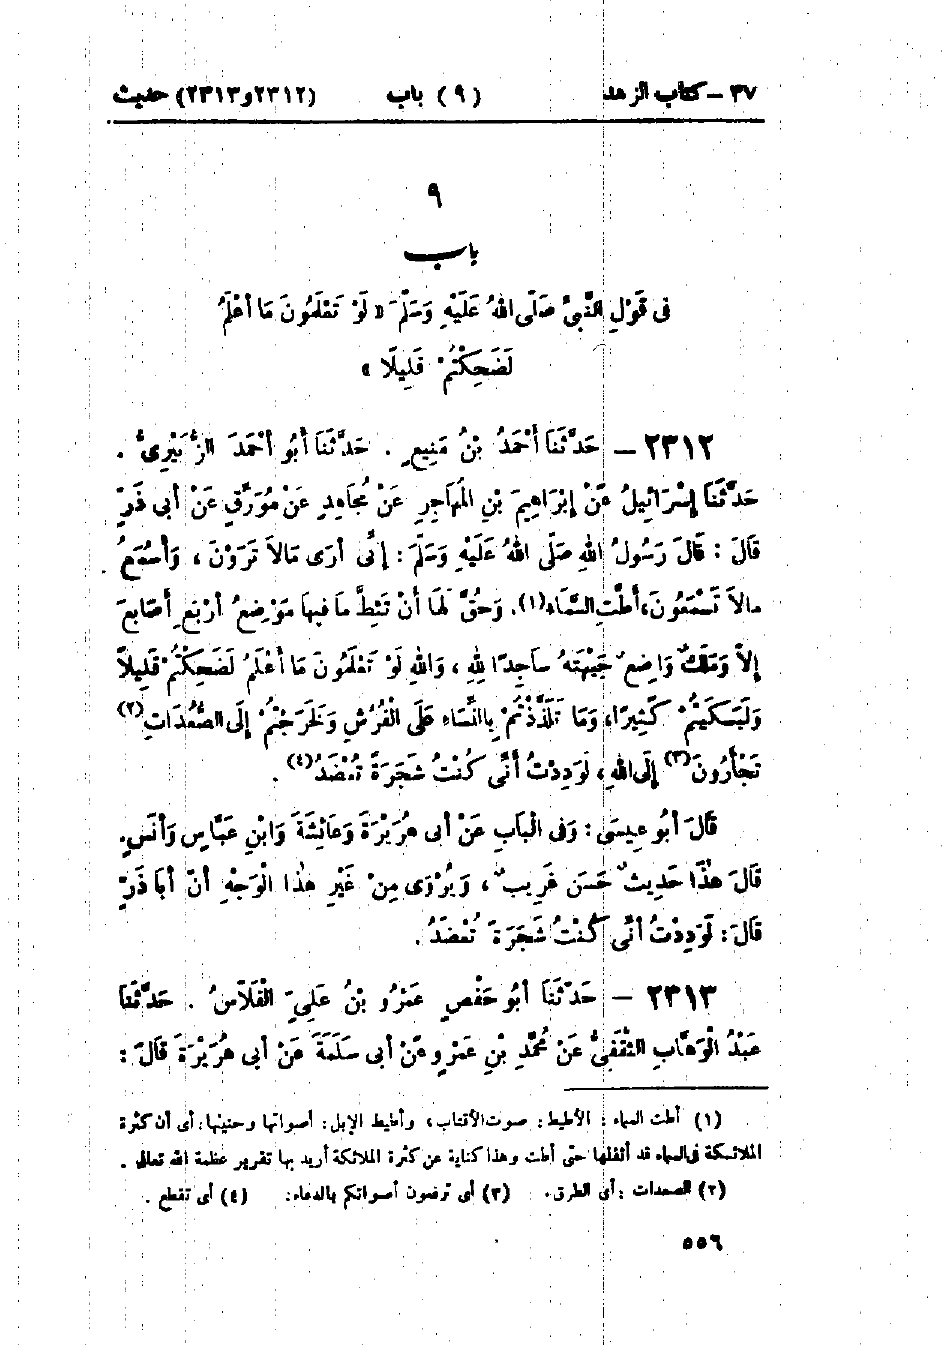 ٣٧ – كتاب الزهد (٩) باب (٢٣١٢و٢٣١٣) حديث
٩
باب
فِى قَوْلِ النَّبِىِّ صَلَّى اللهُ عَلَيْهِ وَسَلَّمَ « لَوْ تَعْلَمُونَ مَا أَعْلَمُ
لَضَحِكْتُمْ قَلِيلًا »
٢٣١٢ – حَدَّثَنَا أَحْمَدُ بْنُ مَنِيعٍ . حَدَّثَنَا أَبُو أَحْمَدَ الزُّبَيْرِىُّ .
حَدَّثَنَا إِسْرَائِيلُ عَنْ إِبْرَاهِيمَ بْنِ المُهَاجِرِ عَنْ مُجَاهِدٍ عَنْ مُوَرِّقٍ عَنْ أَبِى ذَرٍّ
قَالَ : قَالَ رَسُولُ اللهِ صَلَّى اللهُ عَلَيْهِ وَسَلَّمَ : إِنِّى أَرَى مَالاَ تَرَوْنَ ، وَأَسْمَعُ
مالاَ تَسْمَعُونَ، أَطَّتِ السَّمَاء(١). وَحُقَّ لَهَا أَنْ تَئِطَّ مَا فِيهَا مَوْضِعُ أَرْبَعِ أَصَابِعَ
إِلاَّ وَمَلَكٌ وَاضِعٌ جَبْهَتَهُ سَاجِدًا لِلهِ ، وَاللهِ لَوْ تَعْلَمُونَ مَا أَعْلَمُ لَضَحِكْتُمْ قَلِيلاً
وَلَبَكَيْتُمْ كَثِيرًا، وَمَا تَلَذَّذْتُمْ بِالنِّسَاءِ عَلَى الْفُرُشِ وَلَخَرَجْتُمْ إِلَى الصُّعُدَاتِ(٢)
تَجْأَرُونَ(٣) إِلَى اللهِ ، لَوَدِدْتُ أَنِّى كُنْتُ شَجَرَةً تُعْضَدُ(٤) .
قَالَ أَبُو عِيسَى : وَفِى الْبَابِ عَنْ أَبِى هُرَيْرَةَ وَعَائِشَةَ وَابْنِ عَبَّاسٍ وَأَنَسٍ.
قَالَ هٰذَا حَدِيثٌ حَسَن غَرِيبٌ ، وَيُرْوَى مِنْ غَيْرِ هٰذا الْوَجْهِ أَنَّ أَبَا ذَرٍّ
قَالَ : لَوَدِدْتُ أَنِّى كُنْتُ شَجَرَةً تُعْضَدُ .
٢٣١٣ – حَدَّثَنَا أَبُو حَفْصٍ عَمْرُو بْنُ عَلِىٍّ الْفَلاَّسُ . حَدَّثَنَا
عَبْدُ الْوَهَّابِ الثَّقَفِىُّ عَنْ مُحَمَّدِ بْنِ عَمْرٍو عَنْ أَبِى سَلَمَةَ عَنْ أَبِى هُرَيْرَةَ قَالَ :
(١) أطت السماء : الأطيط : صوت الأقتاب ، وأطيط الإبل : أصواتها وحنينها : أى أن كثرة
الملائكة فى السماء قد أثقلها حتى أطت وهذا كناية عن كثرة الملائكة أريد بها تقرير عظمة الله تعالى .
(٢) الصعدات : أى الطرق . (٣) أى ترفعون أصواتكم بالدعاء : (٤) أى تقطع .
٥٥٦